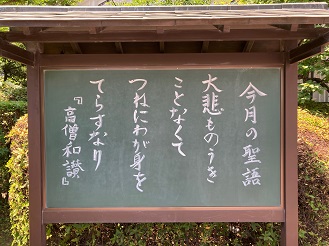 今月の聖語
大悲ものうき
ことなくて
つねにわが身を
てらすなり
『高僧和讃』